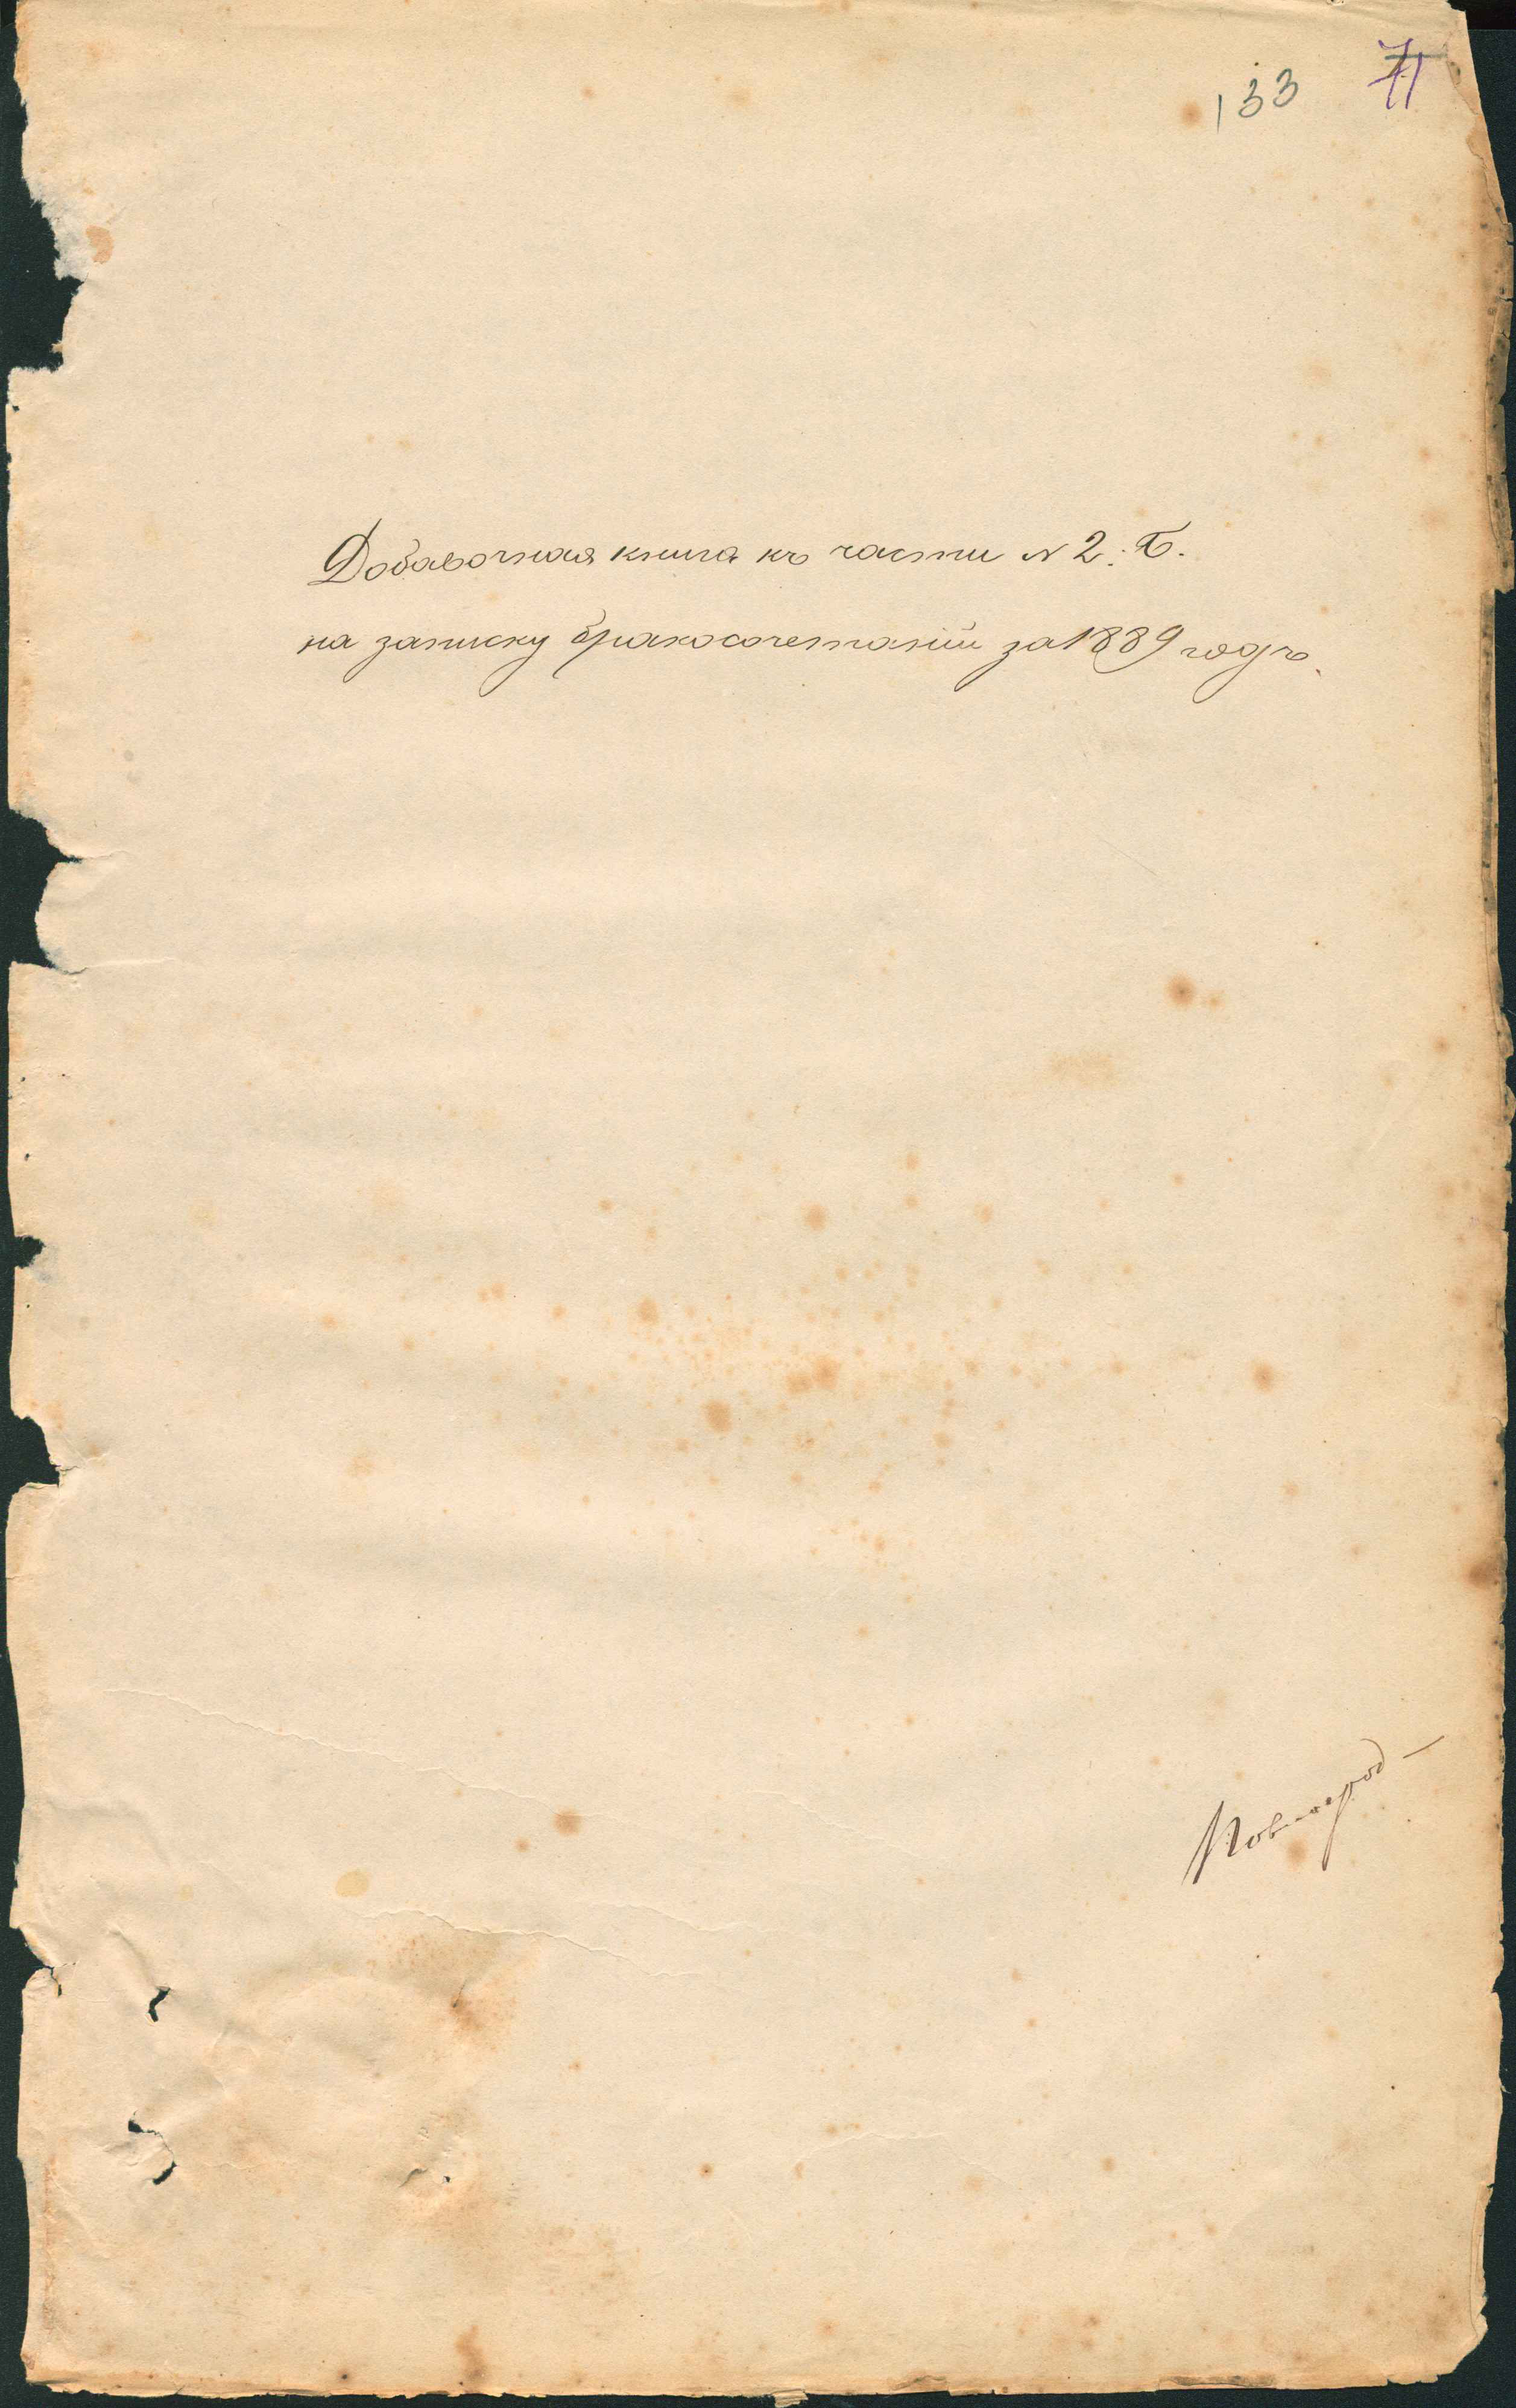 133 71
Добавочная книга къ части № 2. Б.
на записку бракосочетаній за 1889 годъ.